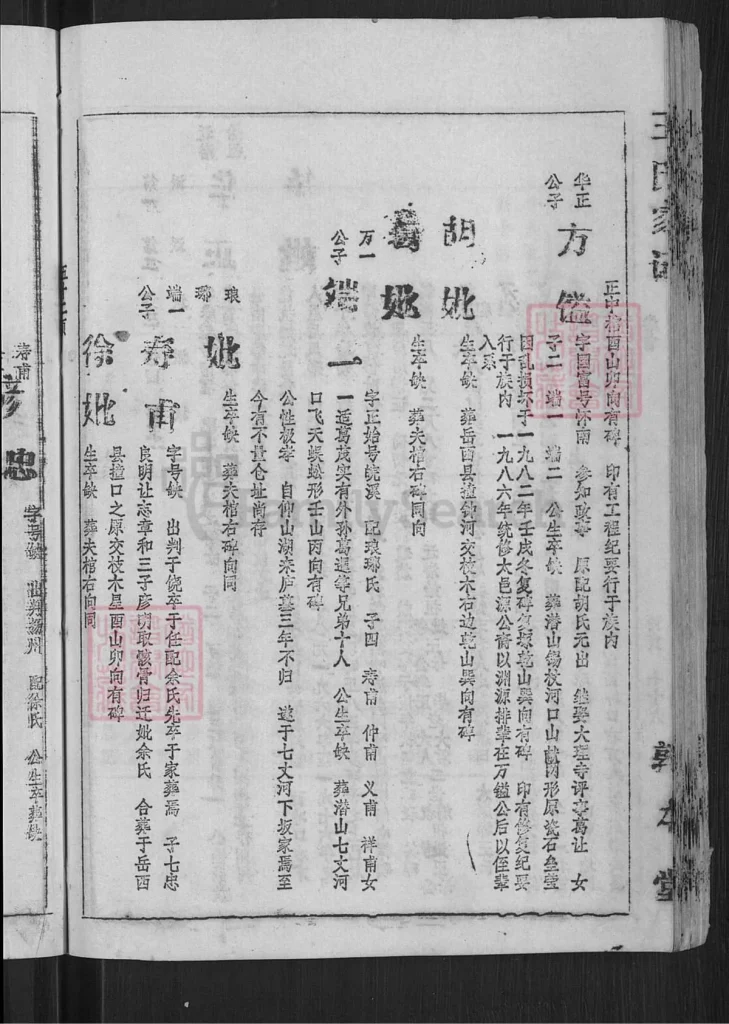 王氏家
敦本堂
正中棺酉山卯向有碑 印有工程纪要行于族内
华正公子
方镒
字国富号怀南 参知政事 原配胡氏元出 继娶大理寺评事葛让 女
子二 端一 端二 公生卒缺 葬潜山锡杖河口山 形原瓷石垒茔
因乱损坏于一九八二年壬戌冬复碑复塚乾山巽向有碑 印有修复纪要
行于族内 一九八六年统修太邑源公裔以渊源排辈在万镒公后以侄辈
入系
胡妣
生卒缺 葬岳西县撞钟河交枝木右边乾山巽向有碑
葛妣
生卒缺 葬夫棺右碑同向
万一公子
端一
字正始号皖溪 配琅琊氏 子四 寿甫 仲甫 义甫 祥甫女
一适葛茂实有外孙葛遇等兄弟十人 公生卒缺 葬潜山七丈河
口飞天蜈蚣形壬山丙向有碑
公性极孝 自仰山湖来庐墓三年不归 遂于七丈河下坂家焉至
今有不量仓址尚存
琅琊妣
生卒缺 葬夫棺右碑向同
端一公子
寿甫
字号缺 出判于饶卒于任配余氏先卒于家葬焉 子七忠
良明让志章和三子彦明取骸骨归迁妣余氏 合葬于岳西
县撞口之原交枝木星酉山卯向有碑
徐妣
生卒缺 葬夫棺右向同
寿甫
彦忠
字号缺 出判扬州 配徐氏 公生卒葬缺